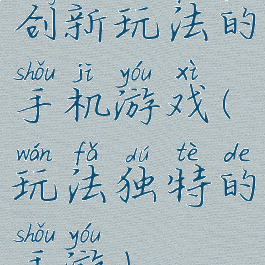 创新玩法的
shǒu jī yóu xì
手机游戏(
wán fǎ dú tè de
玩法独特的
shǒu yóu
手游)